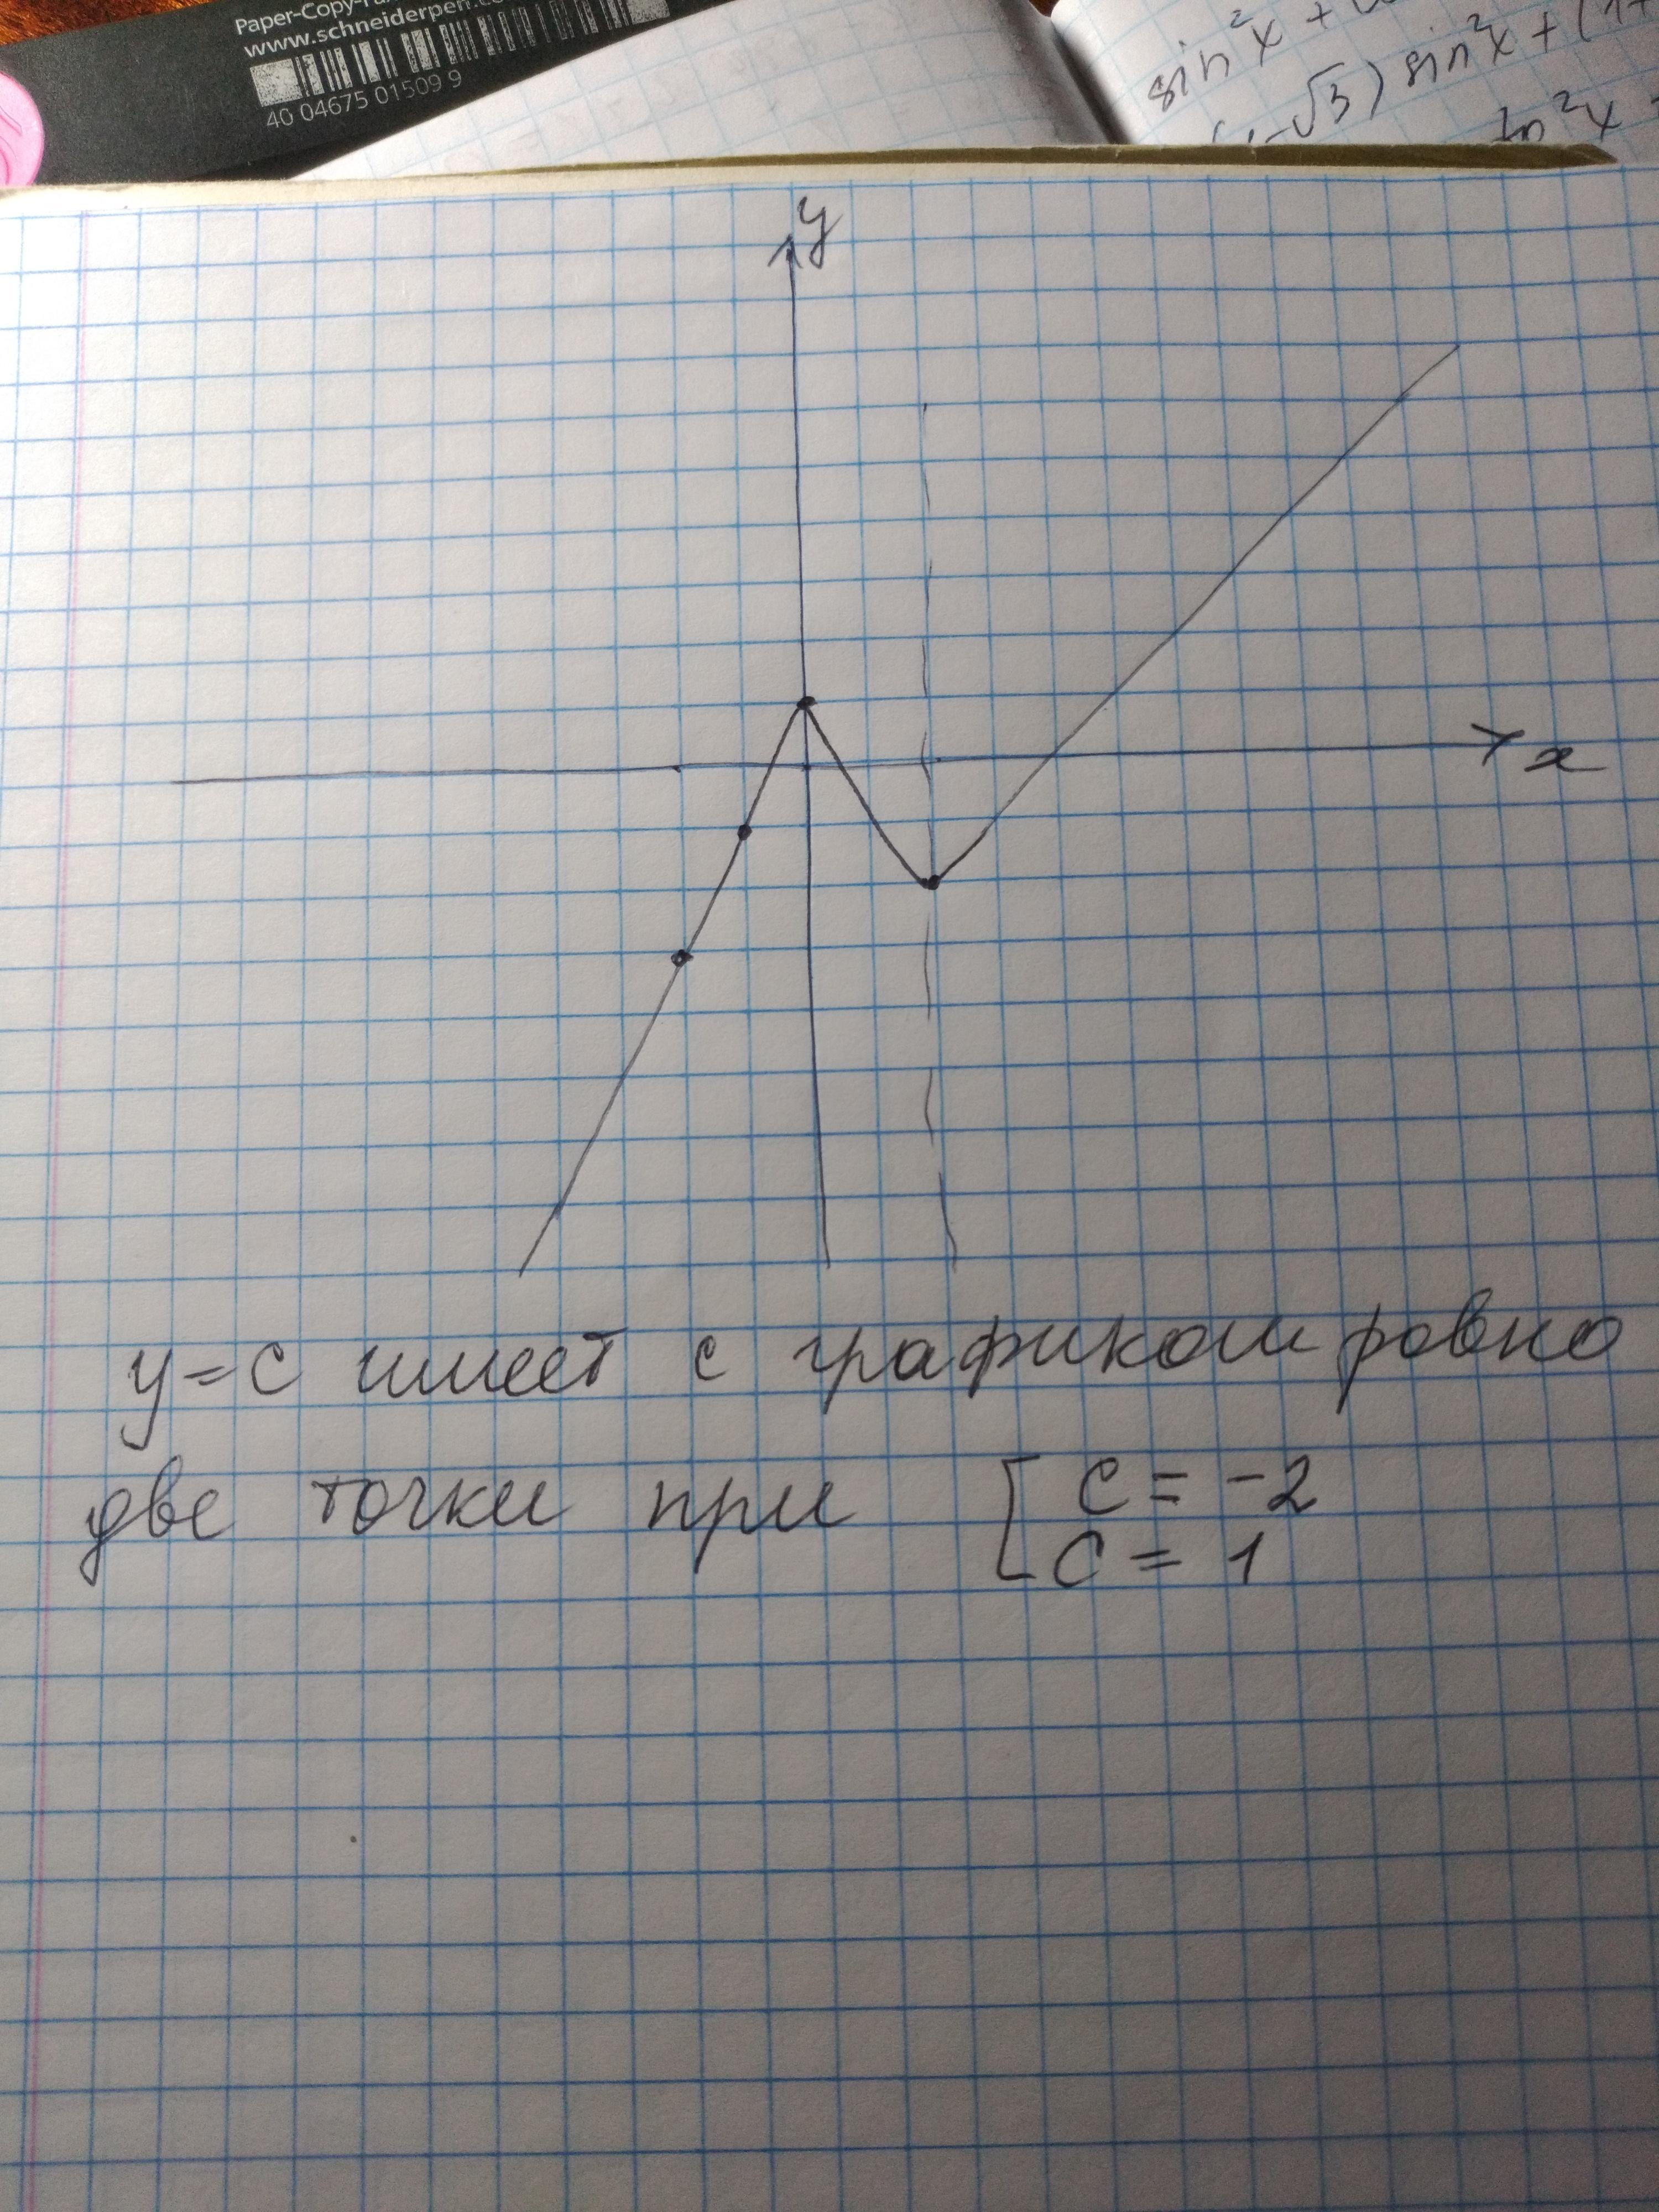 Paper-Copy-
www.schneiderpen.
40 04675 01509 9
sin²x +
-√3) sin²x + (1+
in²x
y
x
y=c имеет с графиком ровно
две точки при [ c = -2
c = 1